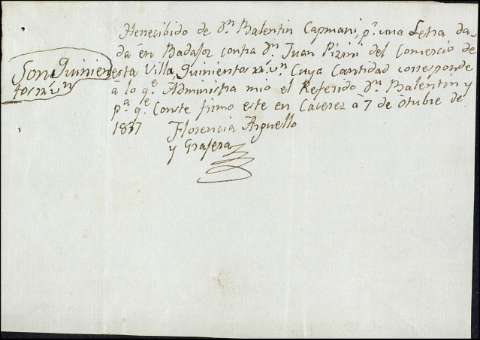 He recibido de Dn. Balentin Capmani pr. una Letra da-
da en Badajoz contra Dn. Juan Pizini del Comercio de
esta Villa, Quinientos rs. vn. Cuya Cantidad corresponde
a lo qe. Administra mio el Referido Dn. Balentin y
pa. qe. Conste firmo este en Caceres a 7 de Otubre de
1837
Florencia Arguello
y Grajera
Son Quinien
tos rs. vn.